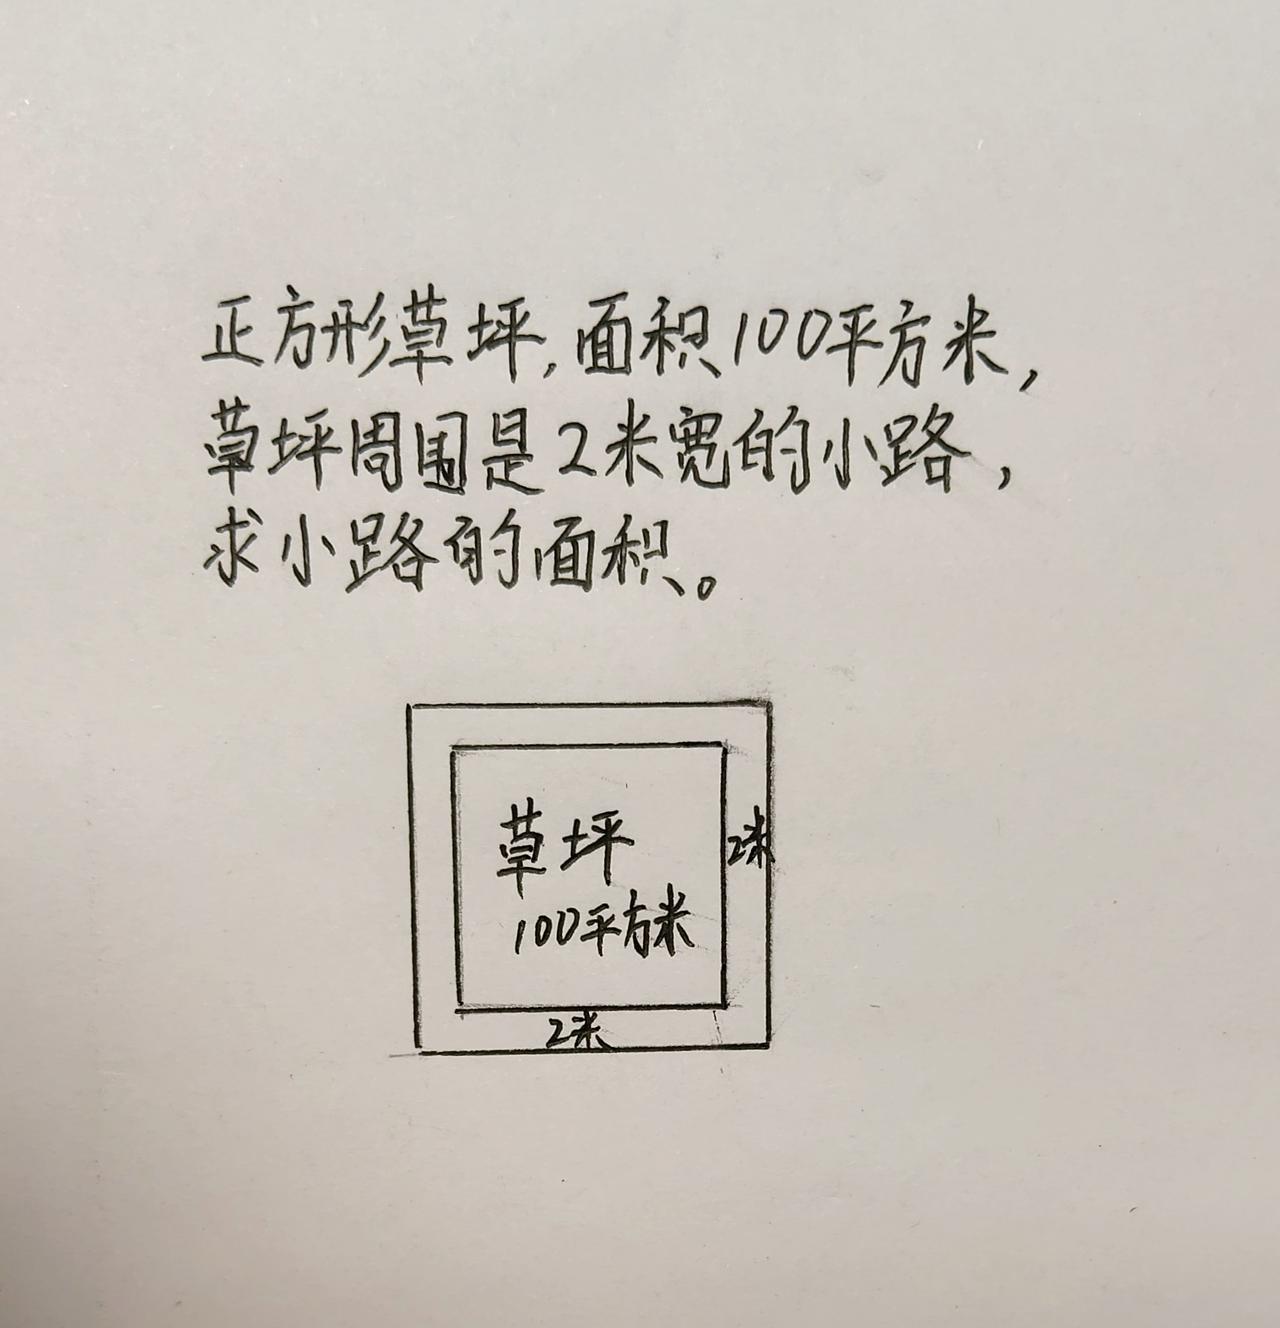 正方形草坪,面积100平方米,
草坪周围是2米宽的小路,
求小路的面积。
草坪
2米
100平方米
2米